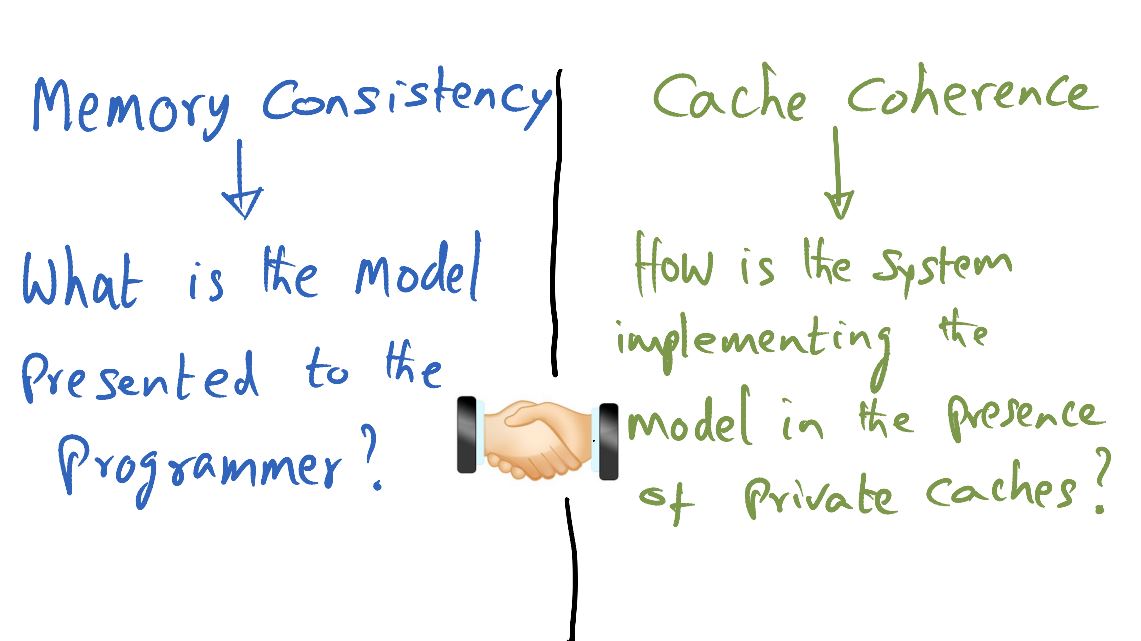 Memory Consistency
What is the Model
Presented to the
Programmer?
Cache Coherence
How is the system
implementing the
model in the presence
of private caches?